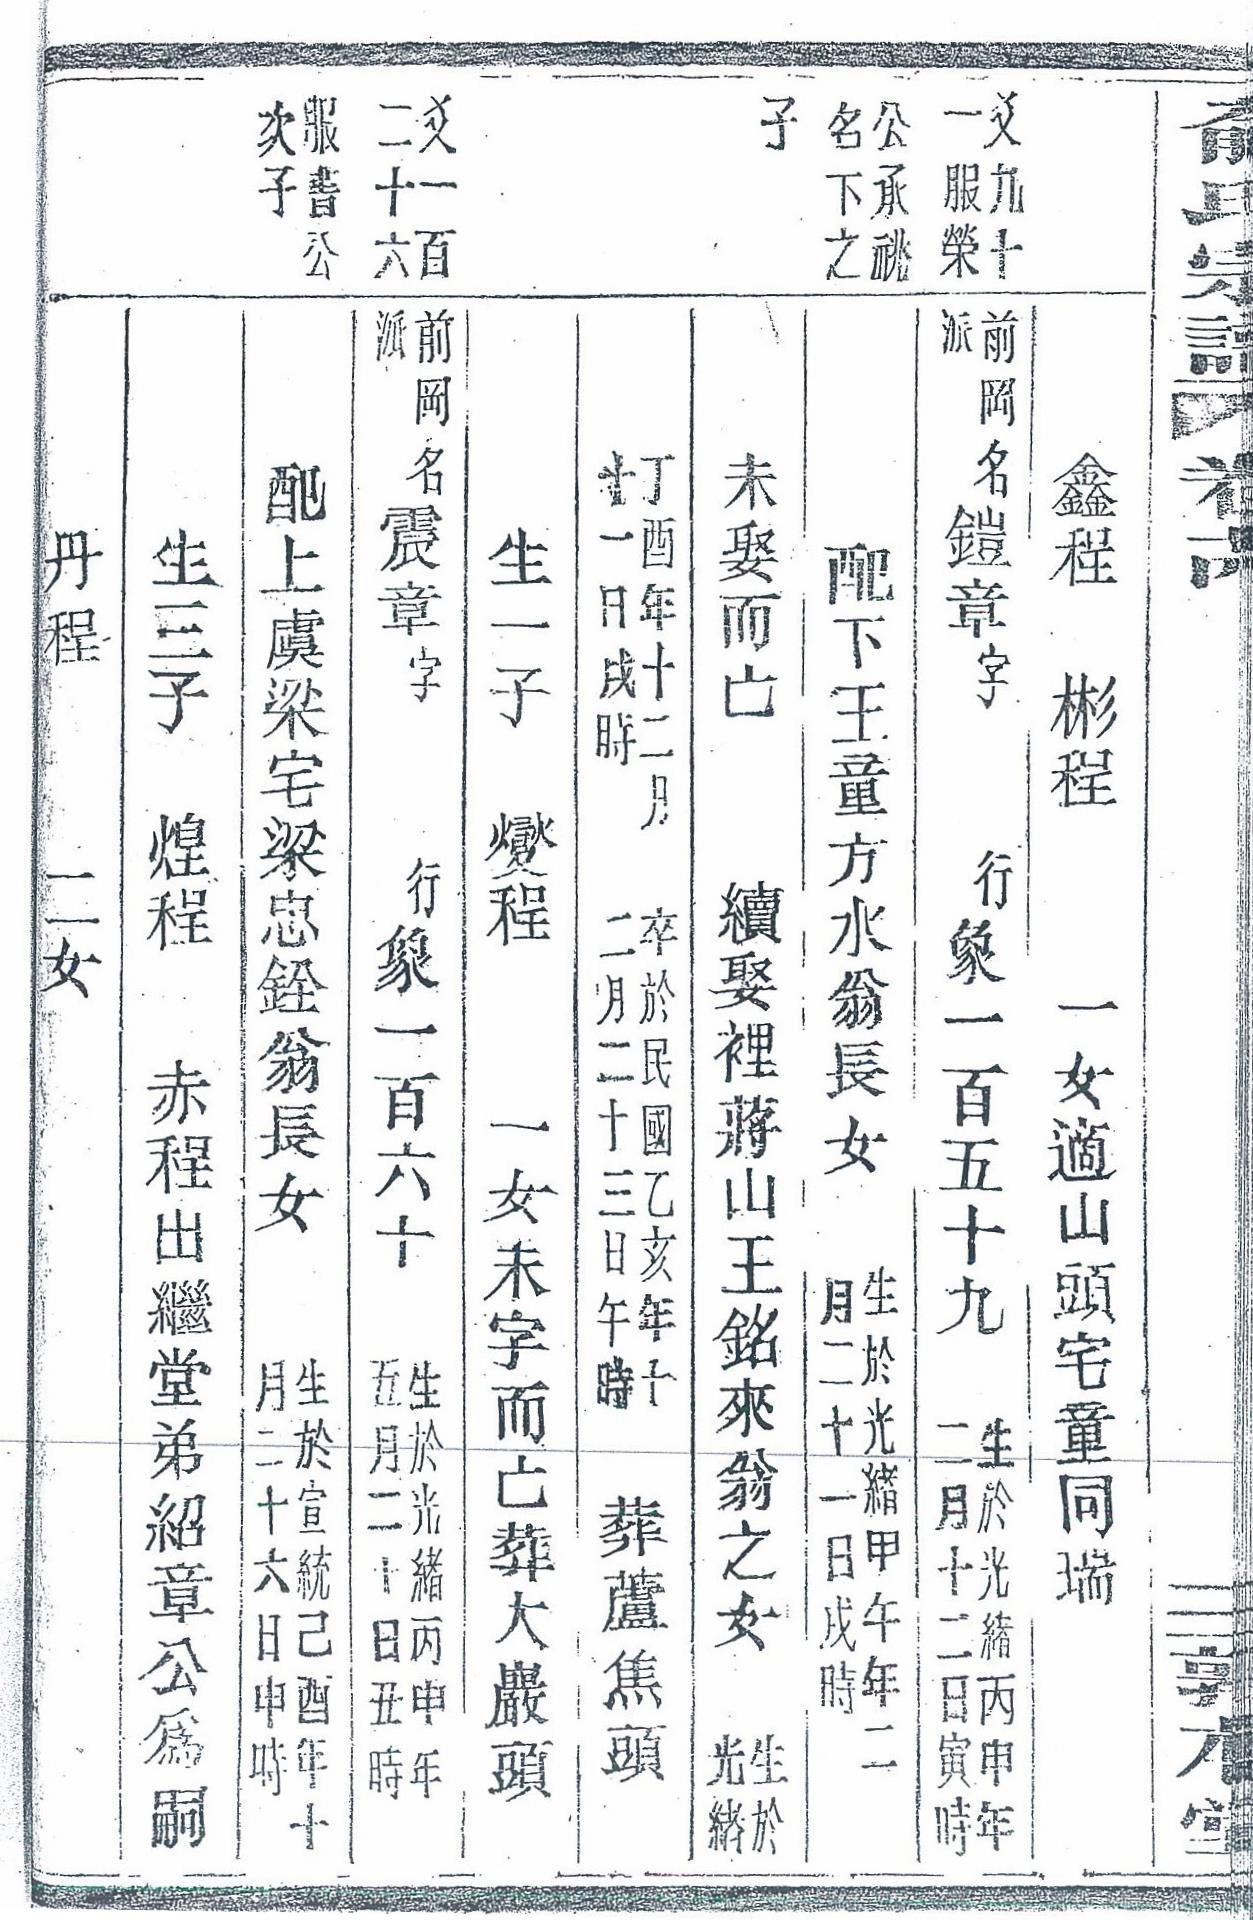 俞氏宗譜
鑫程 彬程 一女適山頭宅童同瑞
爻九十
一服榮
前岡
派
名鎧章字 行象一百五十九
生於光緒丙申年
二月十二日寅時
公承祧
名下之
配下王童方水翁長女
生於光緒甲午年二
月二十一日戌時
子
未娶而亡 續娶裡蔣山王銘來翁之女
生於
光緒
丁酉年十二月
十一日戌時
卒於民國乙亥年十
二月二十三日午時
葬蘆焦頭
生一子 燮程 一女未字而亡葬大巖頭
爻一百
二十六
前岡
派
名震章字 行象一百六十
生於光緒丙申年
五月二十日丑時
服書公
次子
配上虞梁宅梁忠銓翁長女
生於宣統己酉年十
月二十六日申時
生三子 煌程 赤程出繼堂弟紹章公為嗣
丹程 二女